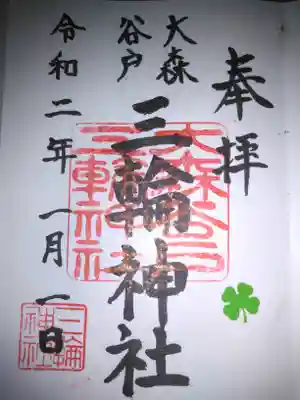 奉拝
大森
谷戸
三輪神社
令和二年一月一日
三輪
神社